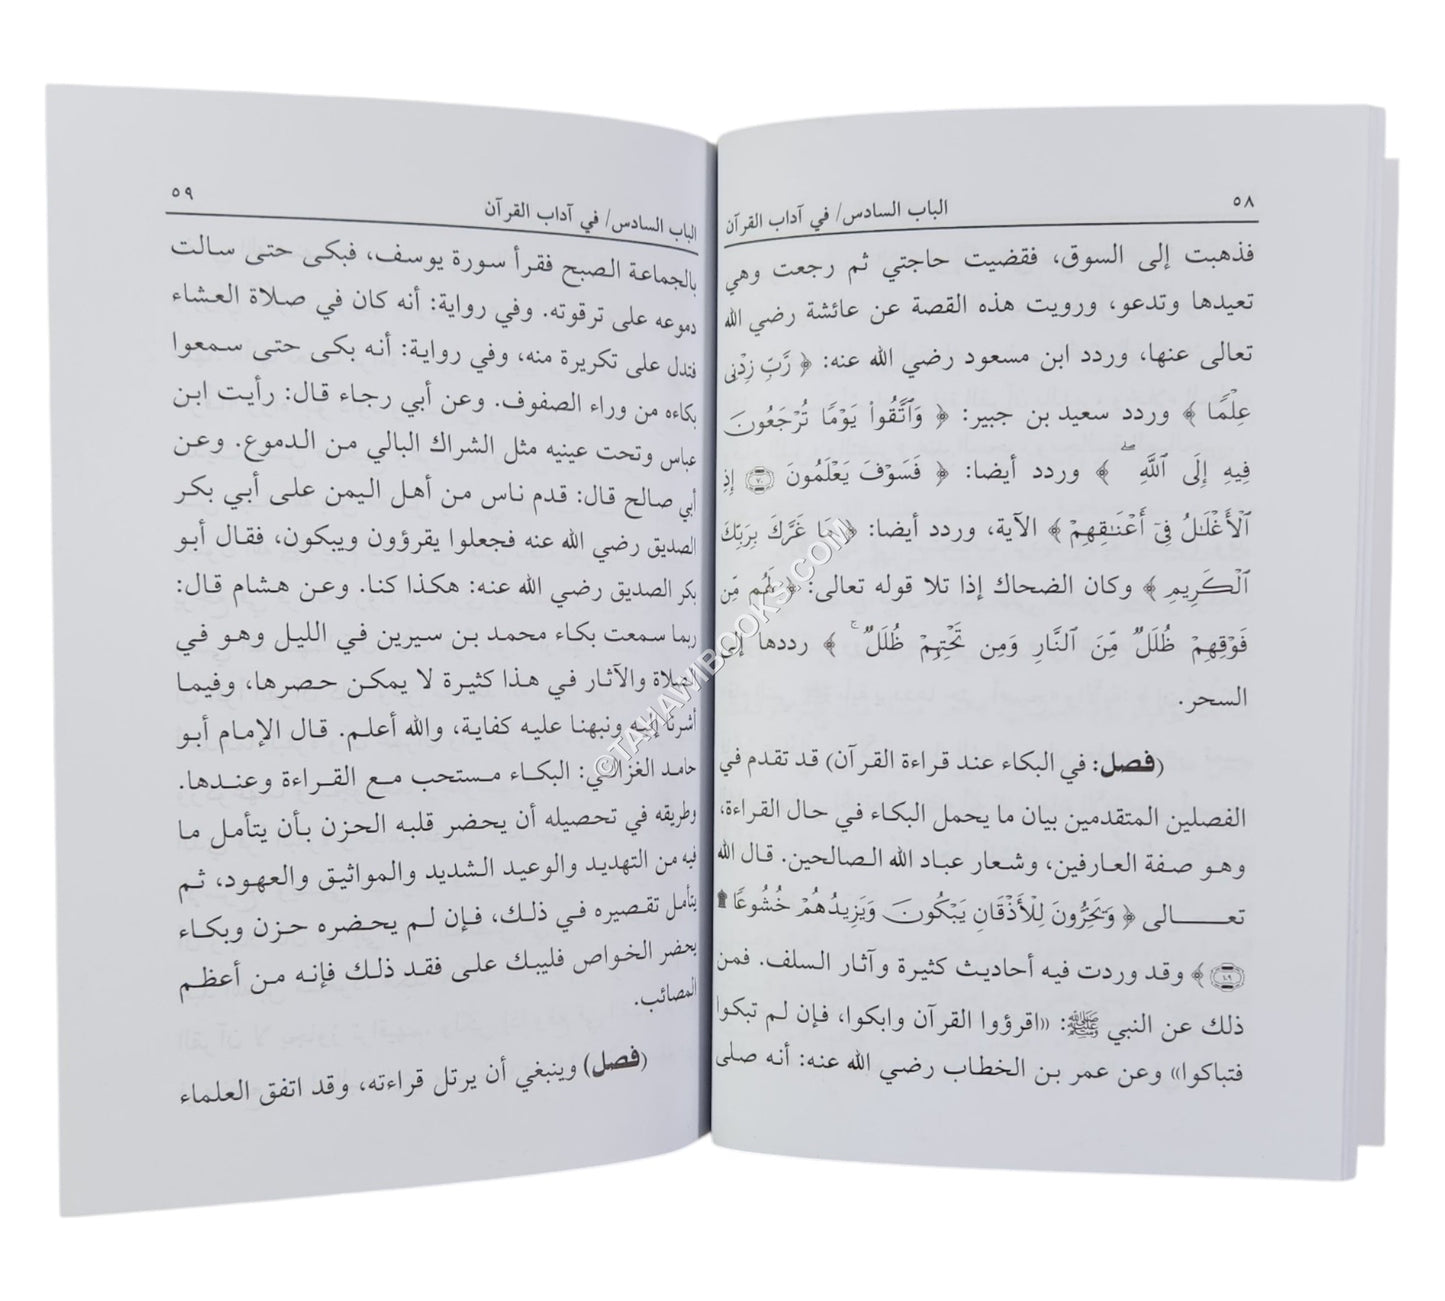 ٥٨
الباب السادس/ في آداب القرآن
فذهبت إلى السوق، فقضيت حاجتي ثم رجعت وهي
تعيدها وتدعو، ورويت هذه القصة عن عائشة رضي الله
تعالى عنها، وردد ابن مسعود رضي الله عنه: ﴿ رَّبِّ زِدْنِى
عِلْمًا ﴾ وردد سعيد بن جبير: ﴿ وَٱتَّقُوا۟ يَوْمًا تُرْجَعُونَ
فِيهِ إِلَى ٱللَّهِ ۖ ﴾ وردد أيضا: ﴿ فَسَوْفَ يَعْلَمُونَ ۝٧٠ إِذِ
ٱلْأَغْلَـٰلُ فِىٓ أَعْنَـٰقِهِمْ ﴾ الآية، وردد أيضا: ﴿ مَا غَرَّكَ بِرَبِّكَ
ٱلْكَرِيمِ ﴾ وكان الضحاك إذا تلا قوله تعالى: ﴿ لَهُم مِّن
فَوْقِهِمْ ظُلَلٌ مِّنَ ٱلنَّارِ وَمِن تَحْتِهِمْ ظُلَلٌ ۚ ﴾ رددها إلى
السحر.
(فصل: في البكاء عند قراءة القرآن) قد تقدم في
الفصلين المتقدمين بيان ما يحمل البكاء في حال القراءة،
وهو صفة العارفين، وشعار عباد الله الصالحين. قال الله
تعـــــالى ﴿ وَيَخِرُّونَ لِلْأَذْقَانِ يَبْكُونَ وَيَزِيدُهُمْ خُشُوعًا ۩
۝١٠٩ ﴾ وقد وردت فيه أحاديث كثيرة وآثار السلف. فمن
ذلك عن النبي ﷺ: «اقرؤوا القرآن وابكوا، فإن لم تبكوا
فتباكوا» وعن عمر بن الخطاب رضي الله عنه: أنه صلى
٥٩
الباب السادس/ في آداب القرآن
بالجماعة الصبح فقرأ سورة يوسف، فبكى حتى سالت
دموعه على ترقوته. وفي رواية: أنه كان في صلاة العشاء
فتدل على تكريرة منه، وفي رواية: أنه بكى حتى سمعوا
بكاءه من وراء الصفوف. وعن أبي رجاء قال: رأيت ابن
عباس وتحت عينيه مثل الشراك البالي من الدموع. وعن
أبي صالح قال: قدم ناس من أهل اليمن على أبي بكر
الصديق رضي الله عنه فجعلوا يقرؤون ويبكون، فقال أبو
بكر الصديق رضي الله عنه: هكذا كنا. وعن هشام قال:
ربما سمعت بكاء محمد بن سيرين في الليل وهو في
الصلاة والآثار في هذا كثيرة لا يمكن حصرها، وفيما
أشرنا إليه ونبهنا عليه كفاية، والله أعلم. قال الإمام أبو
حامد الغزالي: البكاء مستحب مع القراءة وعندها.
وطريقه في تحصيله أن يحضر قلبه الحزن بأن يتأمل ما
فيه من التهديد والوعيد الشديد والمواثيق والعهود، ثم
يتأمل تقصيره في ذلك، فإن لم يحضره حزن وبكاء
يحضر الخواص فليبك على فقد ذلك فإنه من أعظم
المصائب.
(فصل) وينبغي أن يرتل قراءته، وقد اتفق العلماء
©TAHAWIBOOKS.COM